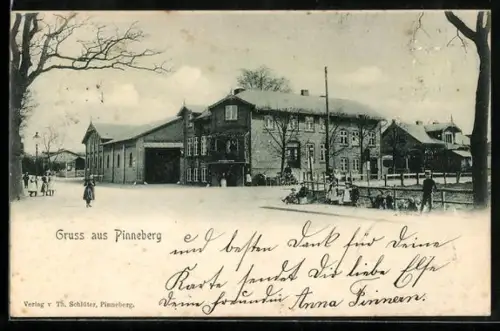 Gruss aus Pinneberg
und besten Dank für Deine
Karte sendet Dir liebe Else
Deine Freundin Anna
Verlag v. Th. Schlüter, Pinneberg.